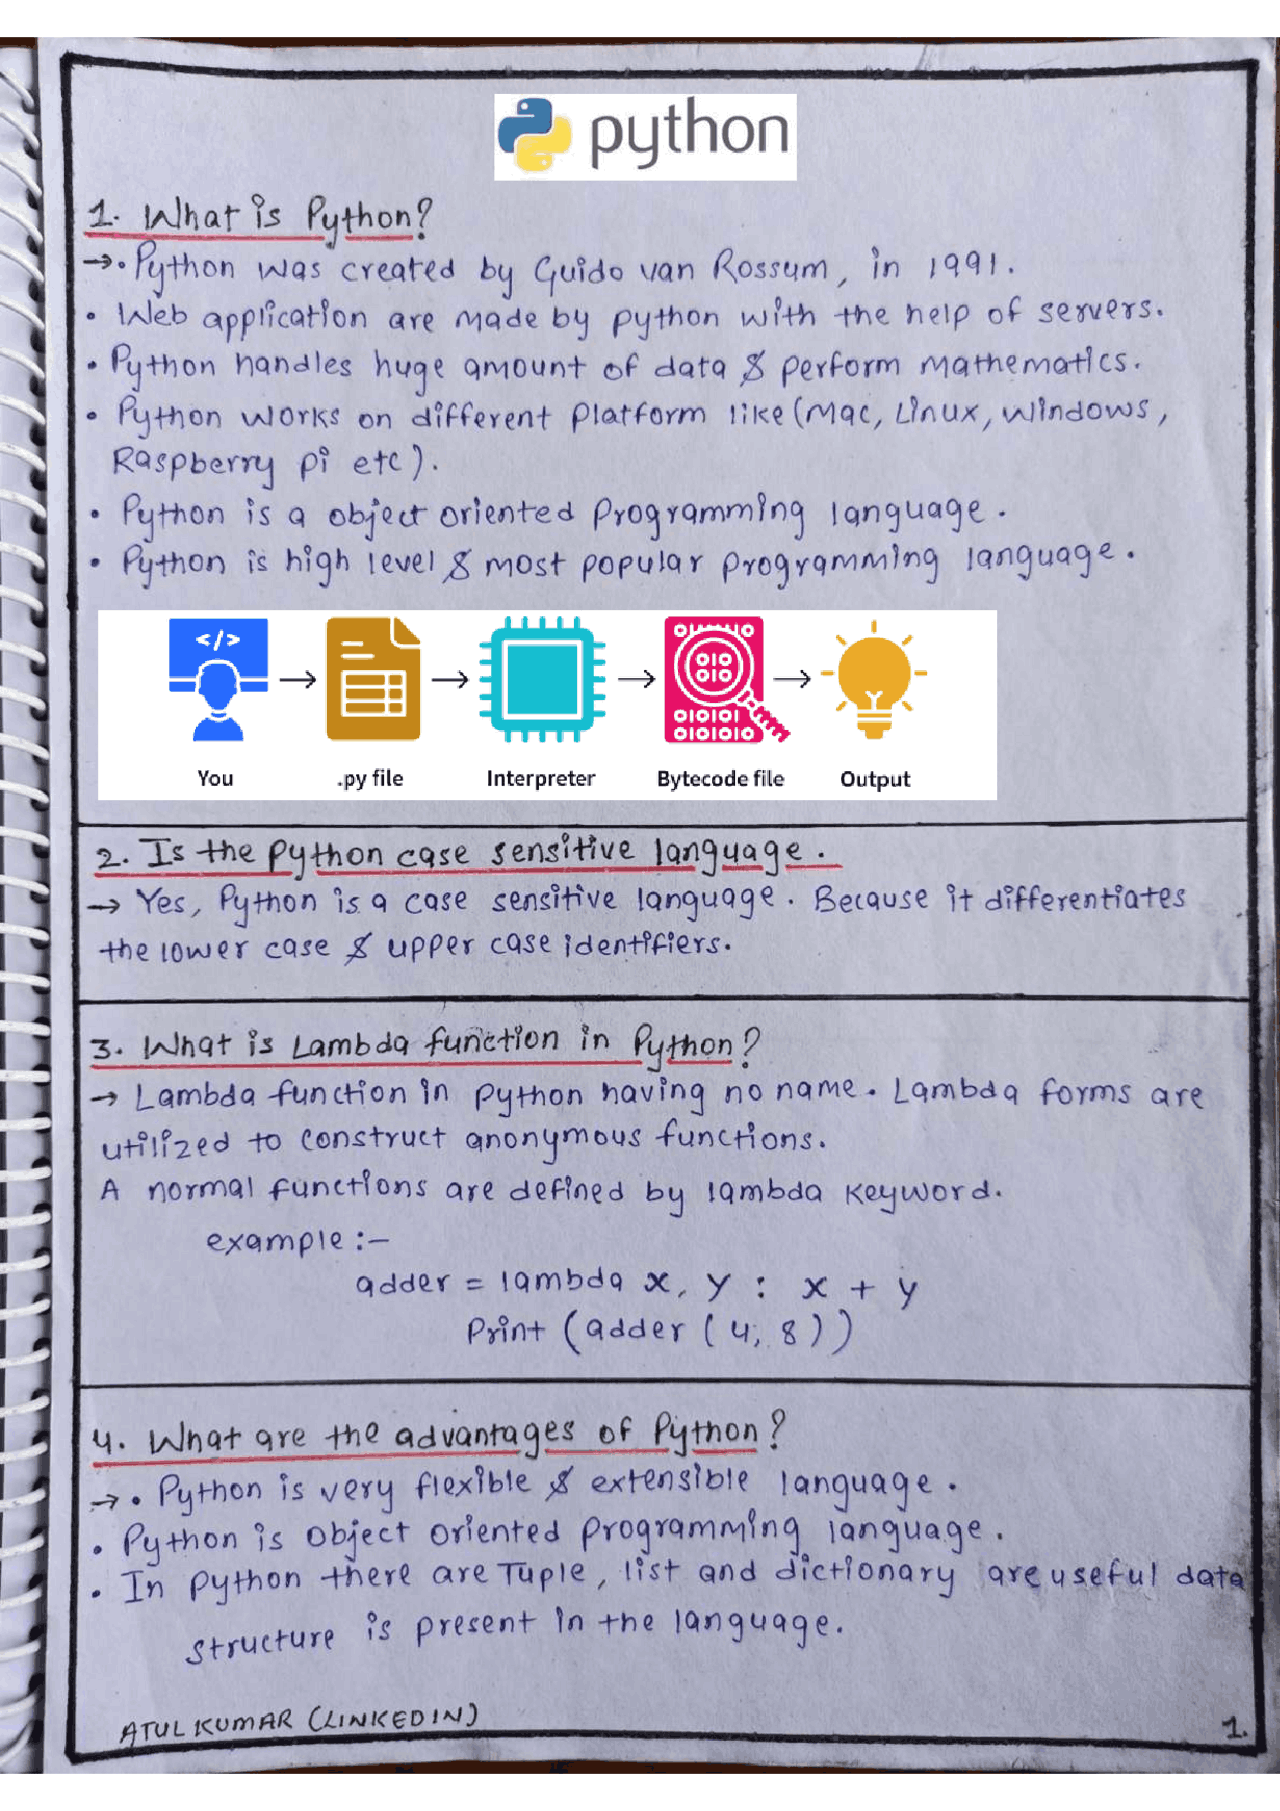 python
1. What is Python?
→ • Python was created by Guido van Rossum, in 1991.
• Web application are made by python with the help of servers.
• Python handles huge amount of data & perform mathematics.
• Python works on different Platform like (Mac, Linux, Windows,
Raspberry pi etc).
• Python is a object oriented Programming language.
• Python is high level & most popular programming language.
</>
You .py file Interpreter Bytecode file Output
2. Is the python case sensitive language.
→ Yes, Python is a case sensitive language. Because it differentiates
the lower case & upper case identifiers.
3. What is Lambda function in Python?
→ Lambda function in python having no name. Lambda forms are
utilized to construct anonymous functions.
A normal functions are defined by lambda keyword.
example :-
adder = lambda x, y : x + y
Print (adder (4, 8))
4. What are the advantages of Python?
→ • Python is very flexible & extensible language.
• Python is object oriented programming language.
• In python there are Tuple, list and dictionary are useful data
structure is present in the language.
ATUL KUMAR (LINKEDIN)
1.